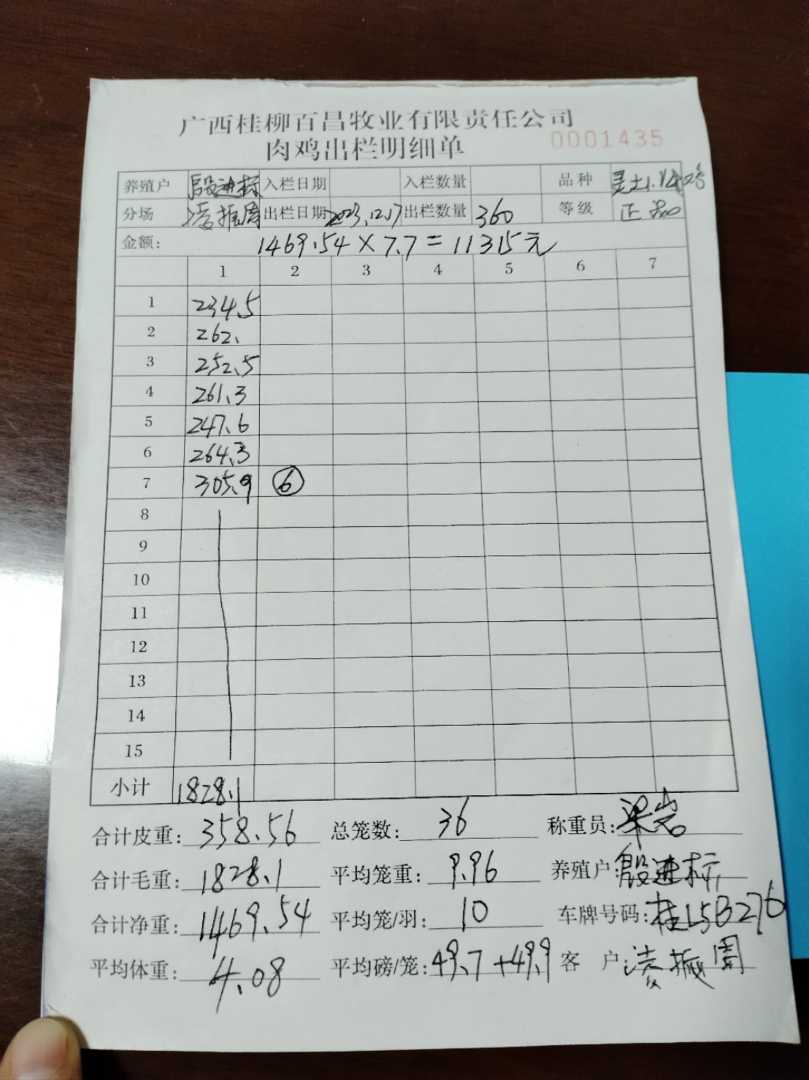 广西桂柳百昌牧业有限责任公司
肉鸡出栏明细单 0001435
养殖户 殷进标 入栏日期 入栏数量 品种
分场 凌振周 出栏日期 2023.12.17 出栏数量 360 等级 正品
金额: 1469.54×7.7=11315元
1 2 3 4 5 6 7
1 234.5
2 262.
3 252.5
4 261.3
5 247.6
6 264.3
7 305.9 ⑥
8
9
10
11
12
13
14
15
小计 1828.1
合计皮重: 358.56 总笼数: 36 称重员: 梁岩
合计毛重: 1828.1 平均笼重: 9.96 养殖户: 殷进标
合计净重: 1469.54 平均笼/羽: 10 车牌号码: 桂L5B276
平均体重: 4.08 平均磅/笼: 49.7+49.9 客 户: 凌振周